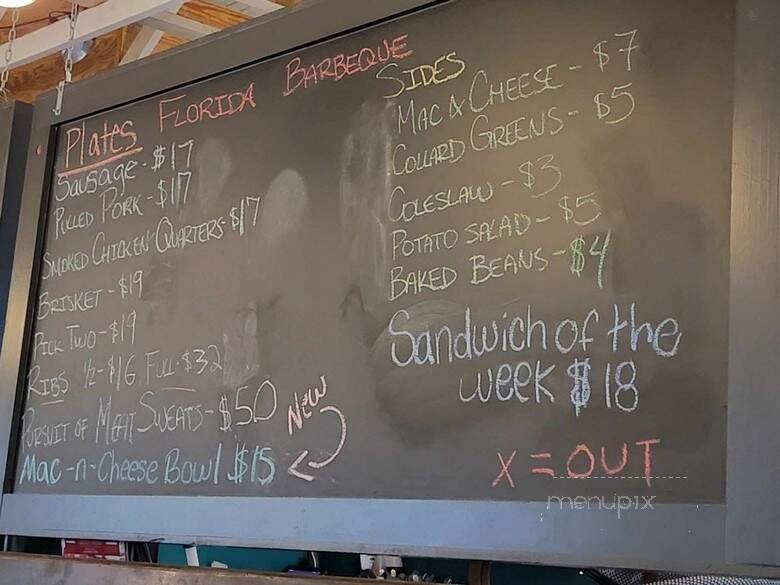 FLORIDA BARBEQUE
Plates
Sausage - $17
PULLED PORK - $17
SMOKED CHICKEN QUARTERS - $17
BRISKET - $19
PICK TWO - $19
RIBS 1/2 - $16 FULL - $32
PURSUIT OF MEAT SWEATS - $50
Mac-n-Cheese Bowl $15
NEW
SIDES
MAC & CHEESE - $7
COLLARD GREENS - $5
COLESLAW - $3
POTATO SALAD - $5
BAKED BEANS - $4
Sandwich of the
week $18
X = OUT
menupix